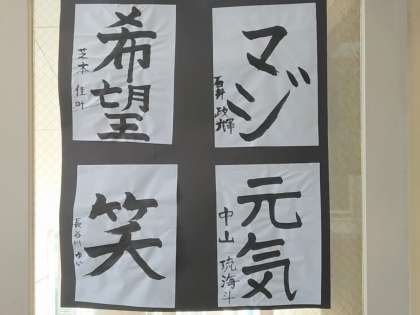 希望
芝本 佳叶
マジ
石井 政輝
笑
長谷川 ゆい
元気
中山 琉海斗